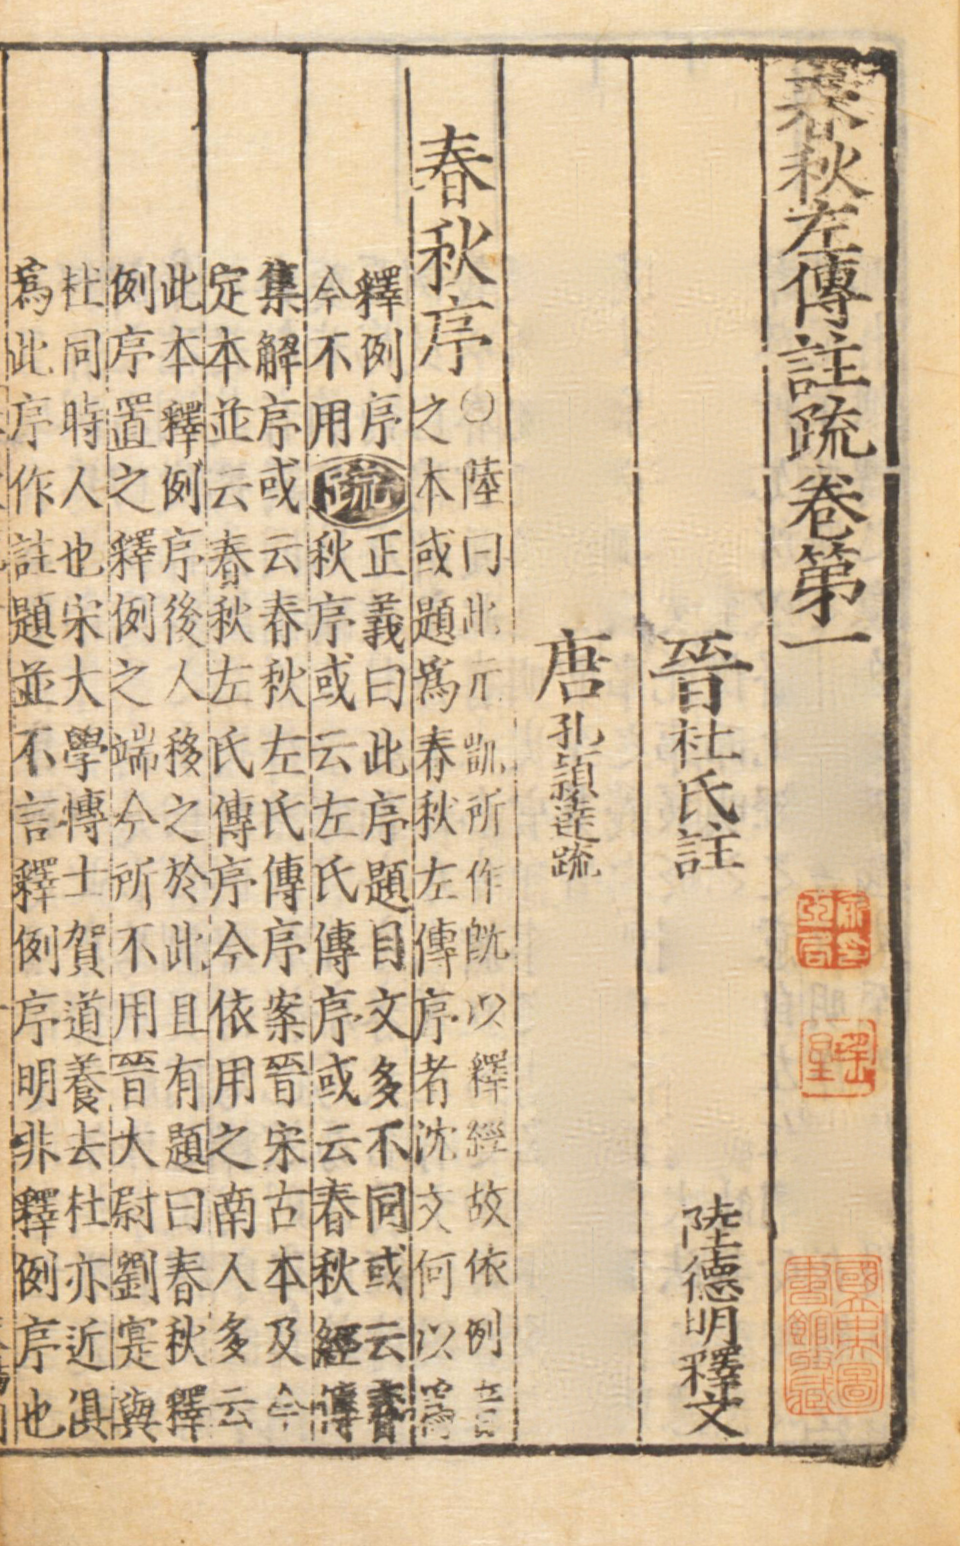 春秋左傳註疏卷第一
晉杜氏註
陸德明釋文
唐孔穎達疏
春秋序
○陸曰此元凱所作旣以釋經故依例音
之本或題爲春秋左傳序者沈文何以爲
釋例序
今不用
疏
正義曰此序題目文多不同或云春
秋序或云左氏傳序或云春秋經傳
集解序或云春秋左氏傳序案晉宋古本及今
定本並云春秋左氏傳序今依用之南人多云
此本釋例序後人移之於此且有題曰春秋釋
例序置之釋例之端今所不用晉大尉劉寔與
杜同時人也宋大學慱士賀道養去杜亦近俱
爲此序作註題並不言釋例序明非釋例序也
國立中央圖書館收藏